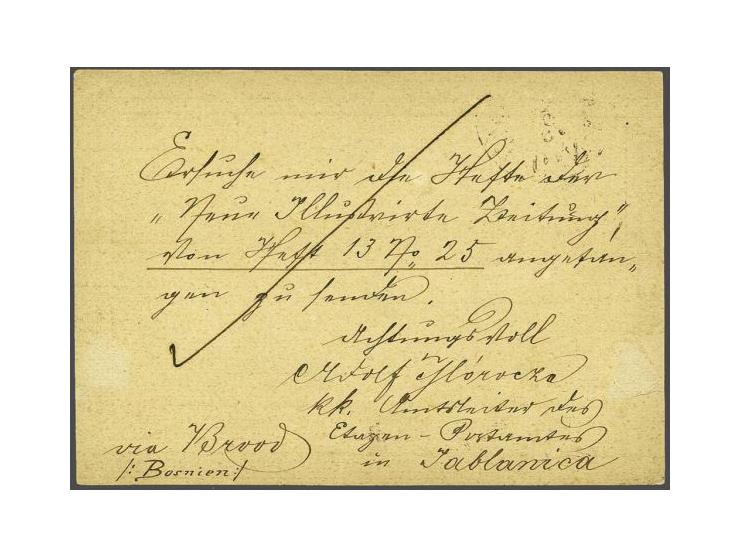 Ersuche mir die Hefte der
„Neue Illustrirte Zeitung“,
von Heft 13 No 25 angefan„
gen zu senden.
Achtungsvoll
Adolf
kk. Amtsleiter des
Etapen-Postamtes
in Jablanica
via Brood
/: Bosnien :/